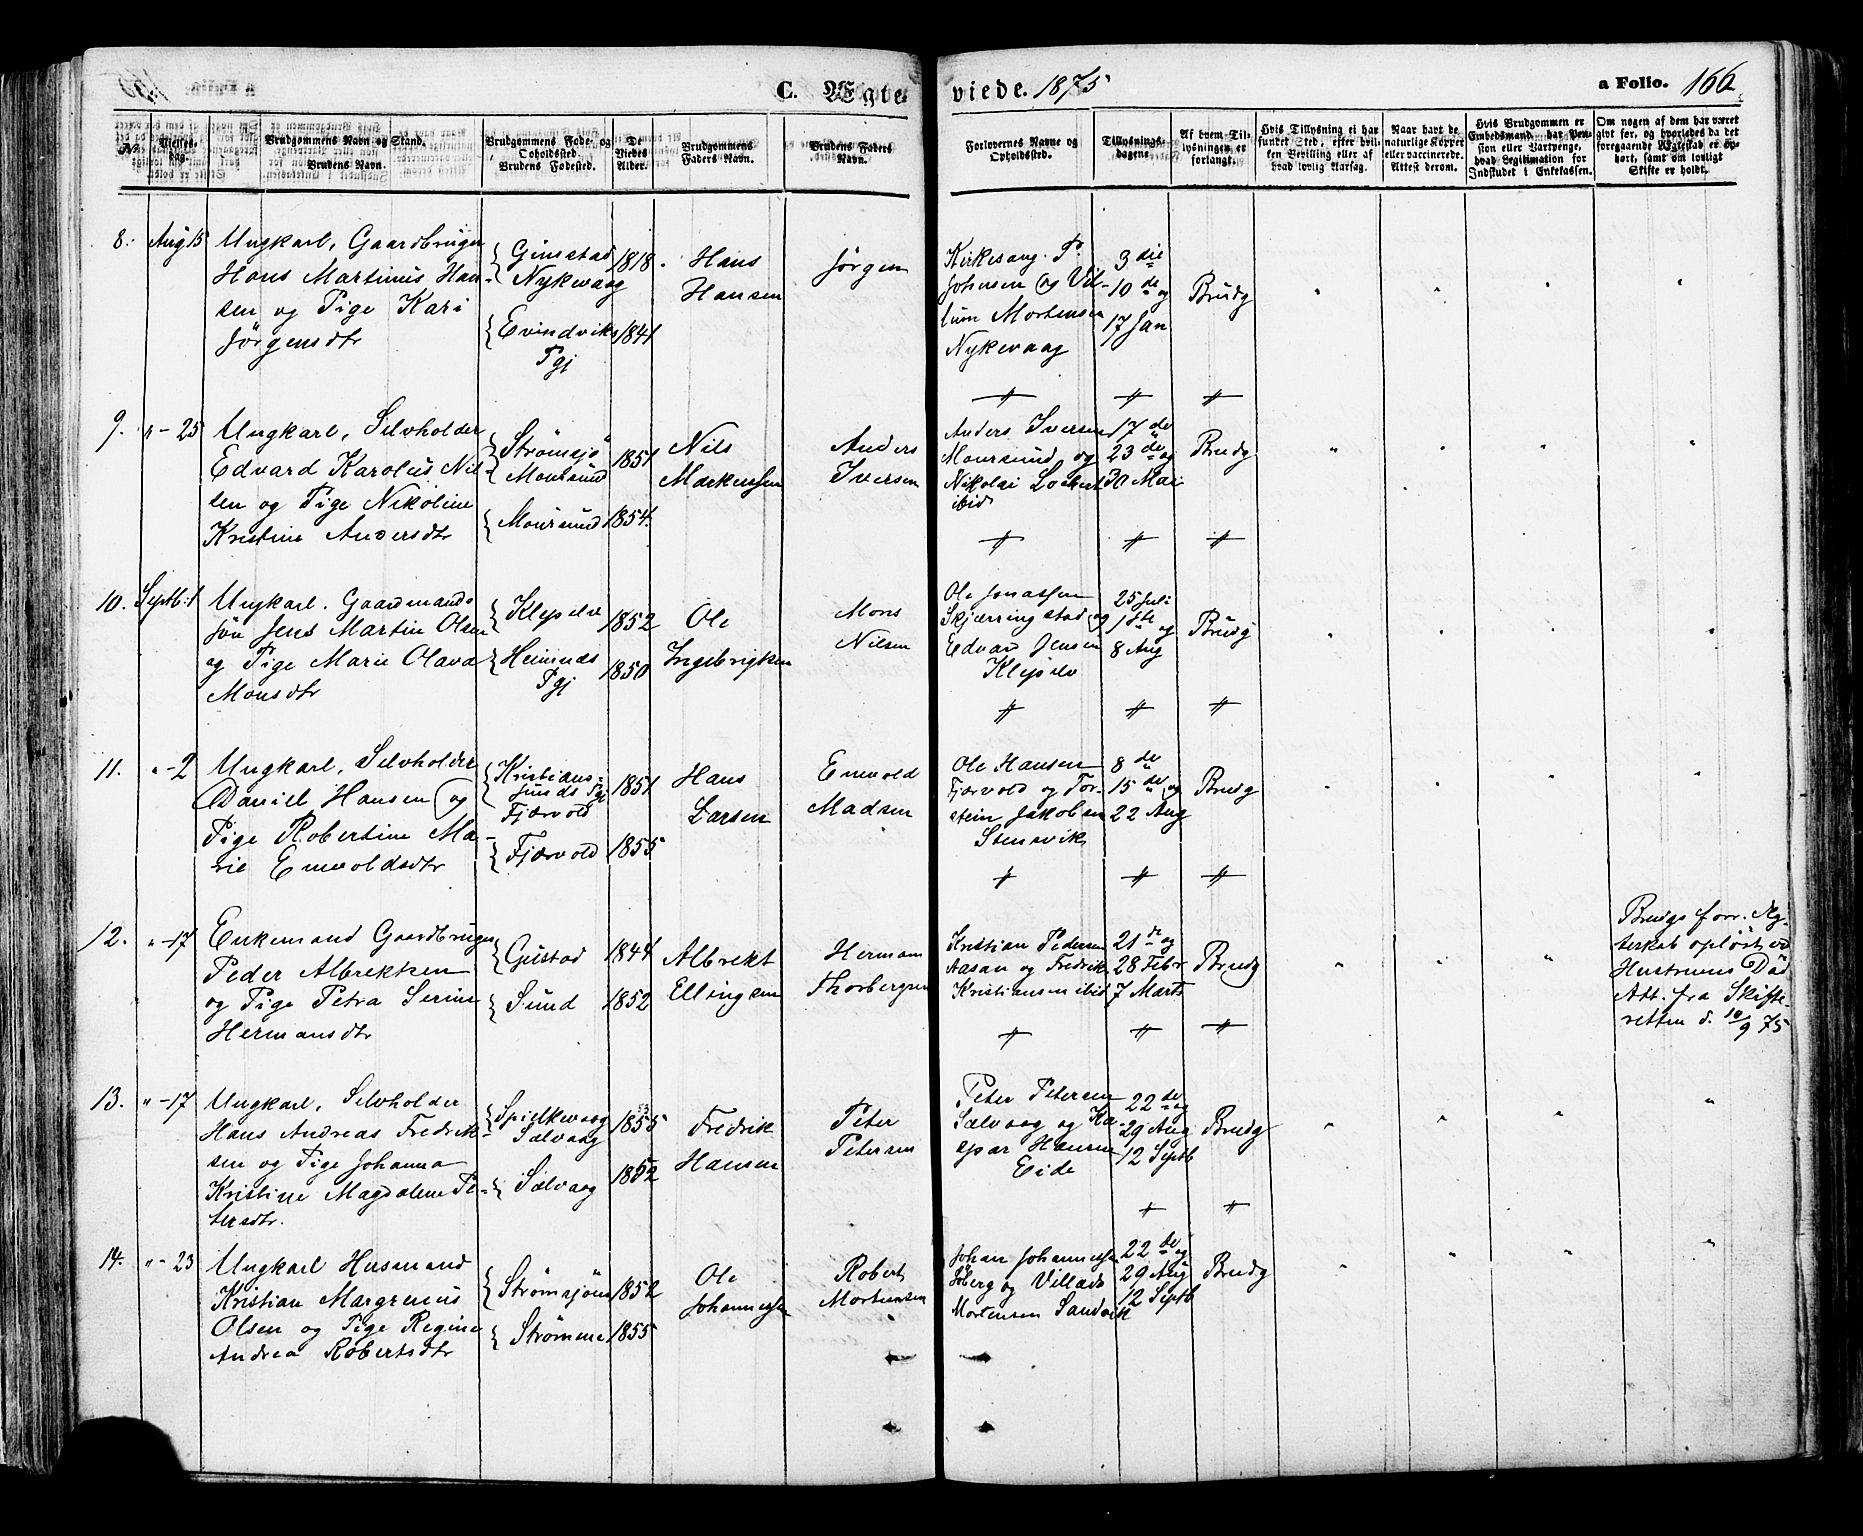 C. Ægte-
viede. 1875
a Folio. 166.
No.
Vielses-
dag.
Brudgommens Navn og Stand.
Brudens Navn.
Brudgommens Føde- og
Opholdssted.
Brudens Fødested.
De
Viedes
Alder.
Brudgommens
Faders Navn.
Brudens Faders
Navn.
Forlovernes Navne og
Opholdssted.
Tillysnings-
dagene.
Af hvem Til-
lysningen er
forlangt.
Hvis Tillysning ei har
fundet Sted, efter hvil-
ken Bevilling eller af
hvad lovlig Aarsag.
Naar havt de
naturlige Kopper
eller vaccinerede.
Attest derom.
Hvis Brudgommen er
Embedsmand, har Pen-
sion eller Vartpenge,
hvad Legitimation for
Indskudet i Enkekassen.
Om nogen af dem har været
gift før, og hvorledes da det
foregaaende Ægteskab er op-
hørt, samt om lovligt
Skifte er holdt.
8. Aug 15
Ungkarl, Gaardbruger
Hans Martinus Han-
sen og Pige Kari
Jørgensdtr
Gimstad
Nykvaag
Evindviks
Pgj
1818.
1841
Hans
Hansen
Jørgen
Kirkesang. P.
Johnsen og Vil-
lum Mortensen
Nykvaag
3 die
10 de og
17 Jan
Brudg
9. " - 25
Ungkarl, Selvholder
Edvard Karolus Nil-
sen og Pige Nikoline
Kristine Andersdtr
Strømsjø
Moursund
Moursund
1851
1854.
Nils
Markussen
Anders
Iversen
Anders Iversen
Moursund og
Nikolai Lockert
ibid
17 de
23 de og
30 Mai
Brudg
10. Septb: 1
Ungkarl. Gaardmands-
søn Jens Martin Olsen
og Pige Marie Olava
Monsdtr
Klepelv
Hemnæs
Pgj
1852
1850
Ole
Ingebrigtsen
Mons
Nilsen
Ole Jonassen
Skjærringstad og
Edvard Jensen
Klepelv
25 Juli
1ste og
8 Aug
Brudg
11. " - 2
Ungkarl, Selvholder
Daniel Hansen og
Pige Robertine Ma-
rie Enevoldsdtr
Kristians-
sunds Pgj
Fjærvold
Fjærvold
1851
1855
Hans
Larsen
Enevold
Madsen
Ole Hansen
Fjærvold og Tor-
stein Jakobsen
Stensvik
8 de
15 de og
22 Aug
Brudg
12. " - 17
Enkemand Gaardbruger
Peder Albrektsen
og Pige Petra Serine
Hermansdtr
Gustad
Sund
1844
1852
Albrekt
Ellingsen
Herman
Thorbergsen
Kristian Pedersen
Aasan og Fredrik
Kristiansen ibid
21 de og
28 Febr
7 Marts
Brudg
Brudgs forr. Æg-
teskab opløst ved
Hustruens Død
Att. fra Skifte-
retten d. 10/9 75
13. " - 17
Ungkarl, Selvholder
Hans Andreas Fredrik-
sen og Pige Johanna
Kristine Magdalene Pe-
tersdtr.
Spjelkevaag
Sælvaag
Sælvaag
1855
1852
Fredrik
Hansen
Peter
Petersen
Peter Petersen
Sælvaag og Ka-
spar Hansen
Eide
22 de og
29 Aug
12 Septb
Brudg
14. " - 23
Ungkarl Husmand
Kristian Margrenius
Olsen og Pige Regine
Andrea Robertsdtr
Strømsjøen
Strømme
1852
1855
Ole
Johannessen
Robert
Mortensen
Johan Johannessen
Søberg og Villads
Mortensen Sandvik
22 de og
29 Aug
12 Septb
Brudg